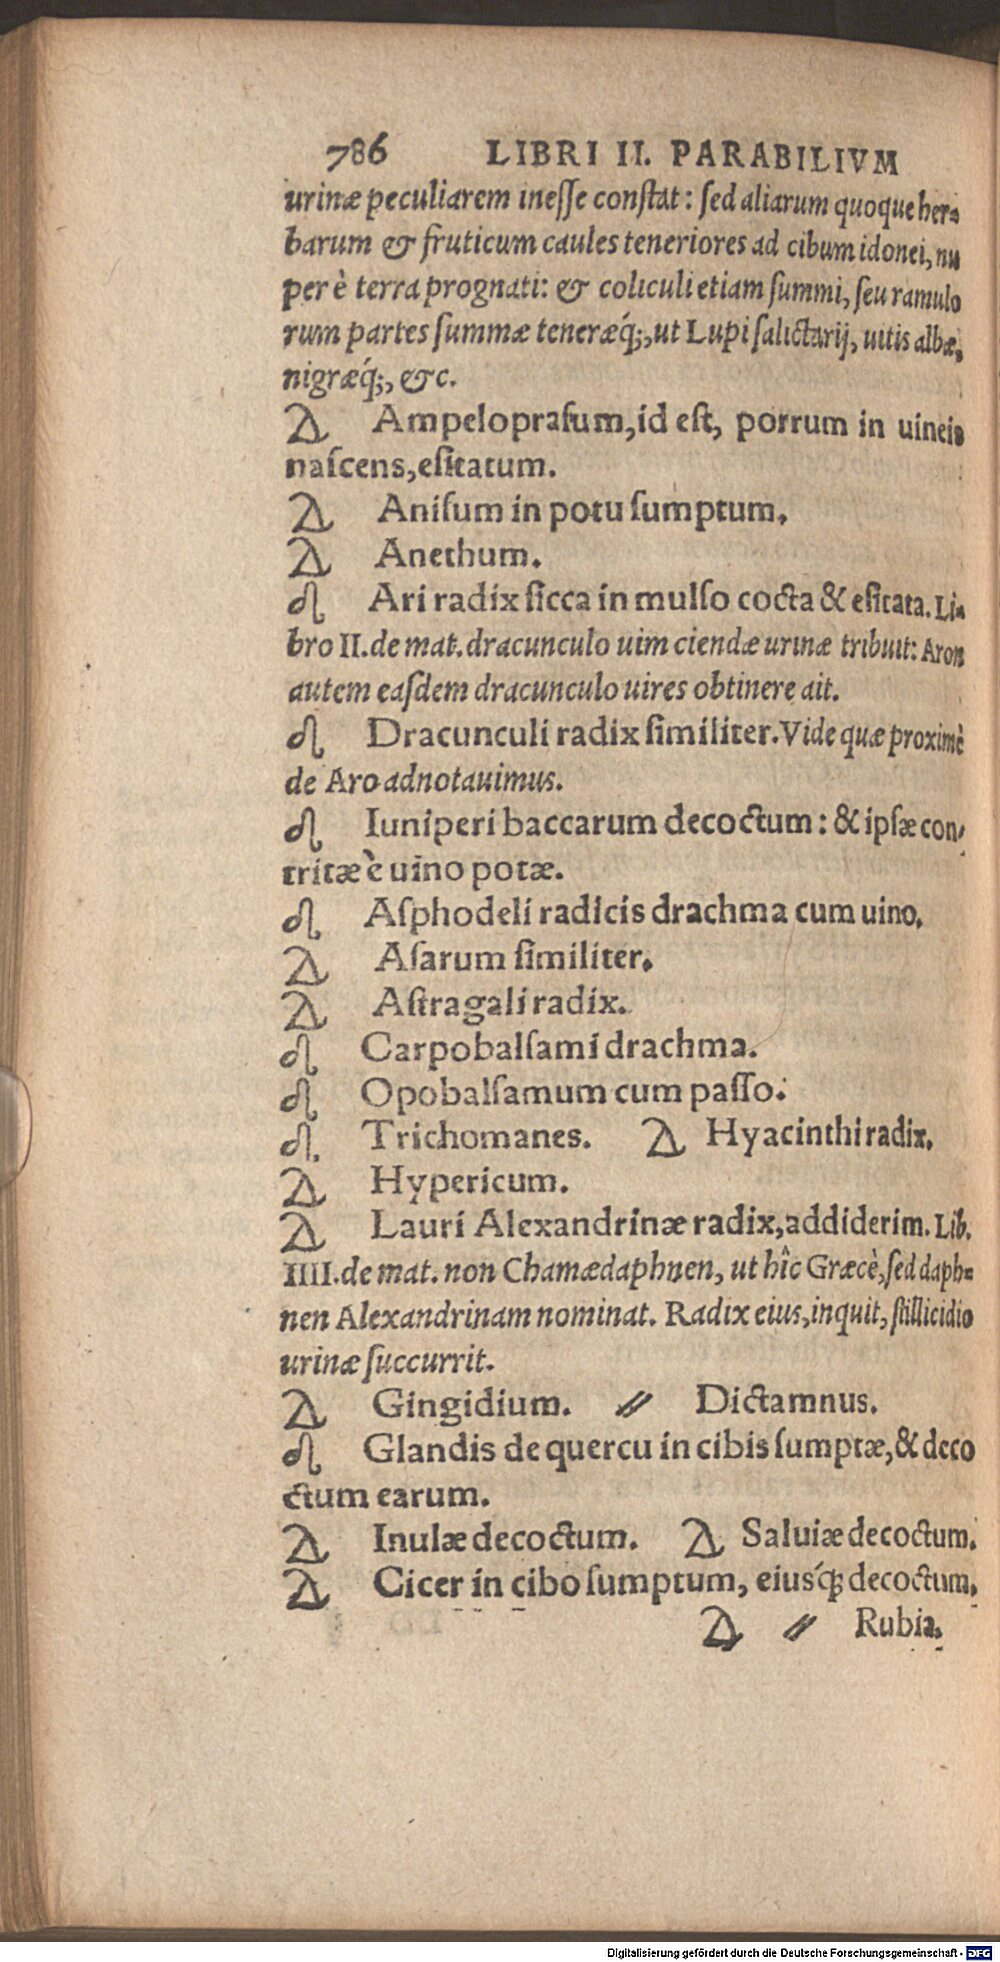 786 LIBRI II. PARABILIVM
urinæ peculiarem inesse constat: sed aliarum quoque her-
barum & fruticum caules teneriores ad cibum idonei, nu
per è terra prognati: & coliculi etiam summi, seu ramulo
rum partes summæ teneræq́;, ut Lupi salictarij, uitis albæ,
nigræq́;, &c.
Ampeloprasum, id est, porrum in uineis
nascens, esitatum.
Anisum in potu sumptum.
Anethum.
♌ Ari radix sicca in mulso cocta & esitata. Li-
bro II. de mat. dracunculo uim ciendæ urinæ tribuit: Aron
autem easdem dracunculo uires obtinere ait.
♌ Dracunculi radix similiter. Vide quæ proximè
de Aro adnotauimus.
♌ Iuniperi baccarum decoctum: & ipsæ con-
tritæ è uino potæ.
♌ Asphodeli radicis drachma cum uino.
Asarum similiter.
Astragali radix.
♌ Carpobalsami drachma.
♌ Opobalsamum cum passo.
♌. Trichomanes. Hyacinthi radix.
Hypericum.
Lauri Alexandrinæ radix, addiderim. Lib.
IIII. de mat. non Chamædaphnen, ut hîc Græcè, sed daph-
nen Alexandrinam nominat. Radix eius, inquit, stillicidio
urinæ succurrit.
Gingidium. // Dictamnus.
♌ Glandis de quercu in cibis sumptæ, & deco
ctum earum.
Inulæ decoctum. Saluiæ decoctum.
Cicer in cibo sumptum, eiusq́; decoctum.
// Rubia.
Digitalisierung gefördert durch die Deutsche Forschungsgemeinschaft - DFG